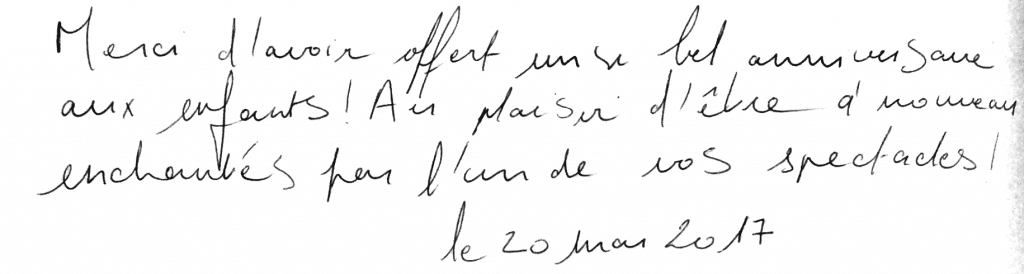 Merci d'avoir offert un si bel anniversaire
aux enfants ! Au plaisir d'être à nouveau
enchantés par l'un de vos spectacles !
le 20 mai 2017